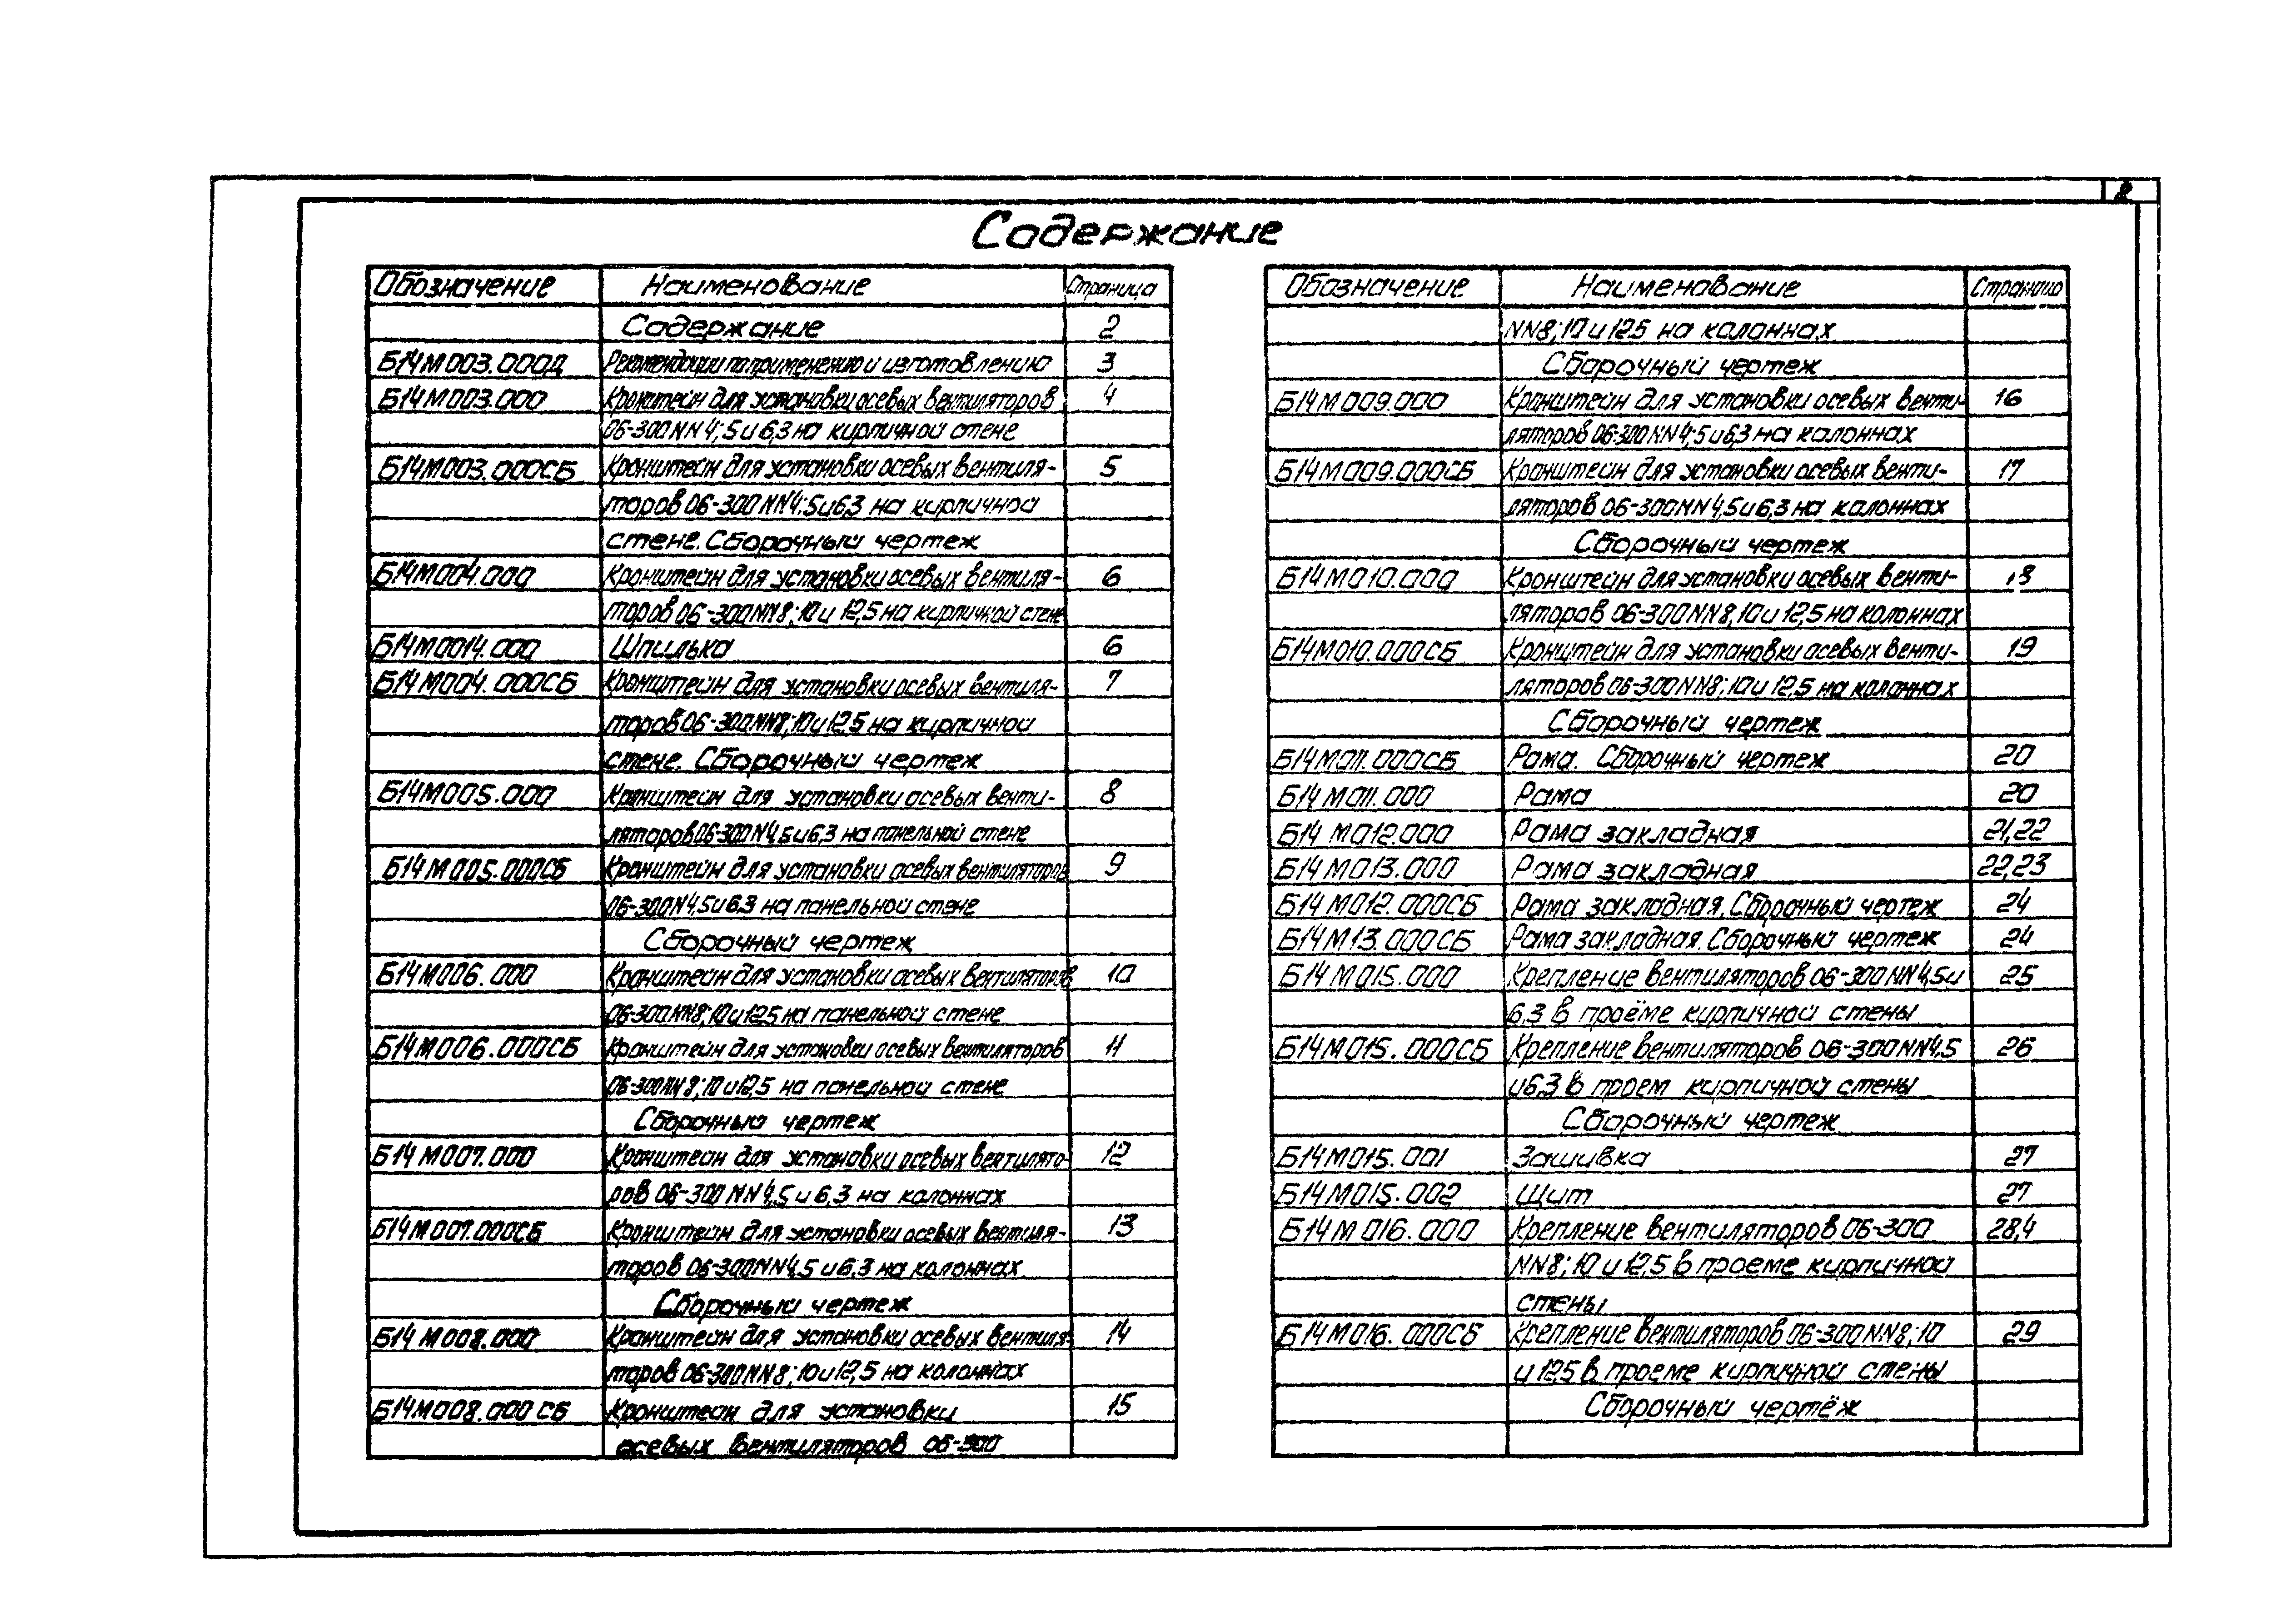 2
Содержание
Обозначение Наименование Страница
Содержание 2
Б14М003.000Д Рекомендации по применению и изготовлению 3
Б14М003.000 Кронштейн для установки осевых вентиляторов 4
06-300 NN 4; 5 и 6,3 на кирпичной стене
Б14М003.000СБ Кронштейн для установки осевых вентиля- 5
торов 06-300 NN 4; 5 и 6,3 на кирпичной
стене. Сборочный чертеж
Б14М004.000 Кронштейн для установки осевых вентиля- 6
торов 06-300 NN 8; 10 и 12,5 на кирпичной стене
Б14М0014.000 Шпилька 6
Б14М004.000СБ Кронштейн для установки осевых вентиля- 7
торов 06-300 NN 8; 10 и 12,5 на кирпичной
стене. Сборочный чертеж
Б14М005.000 Кронштейн для установки осевых венти- 8
ляторов 06-300 N 4,5 и 6,3 на панельной стене
Б14М005.000СБ Кронштейн для установки осевых вентиляторов 9
06-300 N 4,5 и 6,3 на панельной стене
Сборочный чертеж
Б14М006.000 Кронштейн для установки осевых вентиляторов 10
06-300 NN 8; 10 и 12,5 на панельной стене
Б14М006.000СБ Кронштейн для установки осевых вентиляторов 11
06-300 NN 8; 10 и 12,5 на панельной стене
Сборочный чертеж
Б14М007.000 Кронштейн для установки осевых вентилято- 12
ров 06-300 NN 4,5 и 6,3 на колоннах
Б14М007.000СБ Кронштейн для установки осевых вентиля- 13
торов 06-300 NN 4,5 и 6,3 на колоннах
Сборочный чертеж
Б14М008.000 Кронштейн для установки осевых вентиля- 14
торов 06-300 NN 8; 10 и 12,5 на колоннах
Б14М008.000СБ Кронштейн для установки 15
осевых вентиляторов 06-300
Обозначение Наименование Страница
NN 8; 10 и 12,5 на колоннах
Сборочный чертеж
Б14М009.000 Кронштейн для установки осевых венти- 16
ляторов 06-300 NN 4; 5 и 6,3 на колоннах
Б14М009.000СБ Кронштейн для установки осевых венти- 17
ляторов 06-300 NN 4,5 и 6,3 на колоннах
Сборочный чертеж
Б14М010.000 Кронштейн для установки осевых венти- 18
ляторов 06-300 NN 8, 10 и 12,5 на колоннах
Б14М010.000СБ Кронштейн для установки осевых венти- 19
ляторов 06-300 NN 8; 10 и 12,5 на колоннах
Сборочный чертеж
Б14М011.000СБ Рама. Сборочный чертеж 20
Б14М011.000 Рама 20
Б14М012.000 Рама закладная 21,22
Б14М013.000 Рама закладная 22,23
Б14М012.000СБ Рама закладная. Сборочный чертеж 24
Б14М13.000СБ Рама закладная. Сборочный чертеж 24
Б14М015.000 Крепление вентиляторов 06-300 NN 4,5 и 25
6,3 в проёме кирпичной стены
Б14М015.000СБ Крепление вентиляторов 06-300 NN 4,5 26
и 6,3 в проем кирпичной стены
Сборочный чертеж
Б14М015.001 Зашивка 27
Б14М015.002 Щит 27
Б14М016.000 Крепление вентиляторов 06-300 28,4
NN 8; 10 и 12,5 в проеме кирпичной
стены
Б14М016.000СБ Крепление вентиляторов 06-300 NN 8; 10 29
и 12,5 в проеме кирпичной стены
Сборочный чертёж